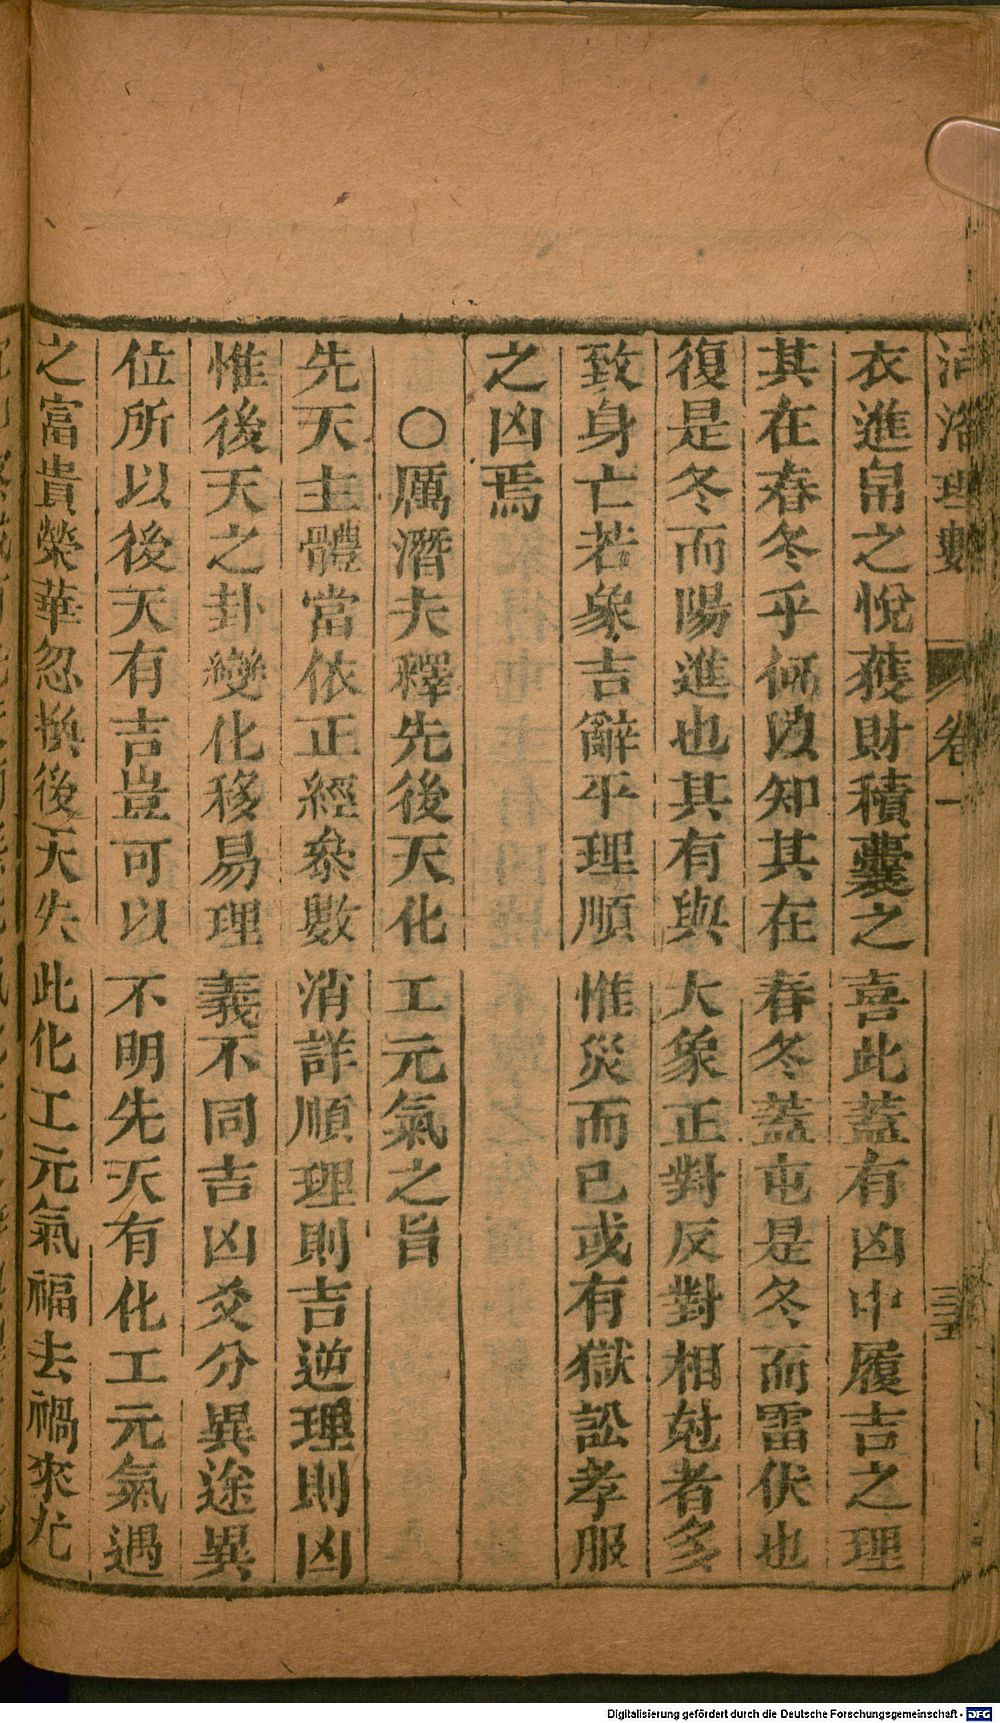 河洛理數 卷一 三五
衣進帛之悅獲財積囊之喜此蓋有凶中履吉之理
其在春冬乎何以知其在春冬蓋屯是冬而雷伏也
復是冬而陽進也其有與大象正對反對相尅者多
致身亡若象吉辭平理順惟災而已或有獄訟孝服
之凶焉
〇厲潛夫釋先後天化工元氣之旨
先天主體當依正經叅數消詳順理則吉逆理則凶
惟後天之卦變化移易理義不同吉凶爻分異途異
位所以後天有吉豈可以不明先天有化工元氣遇
之富貴榮華忽換後天失此化工元氣福去禍來尤
Digitalisierung gefördert durch die Deutsche Forschungsgemeinschaft - DFG